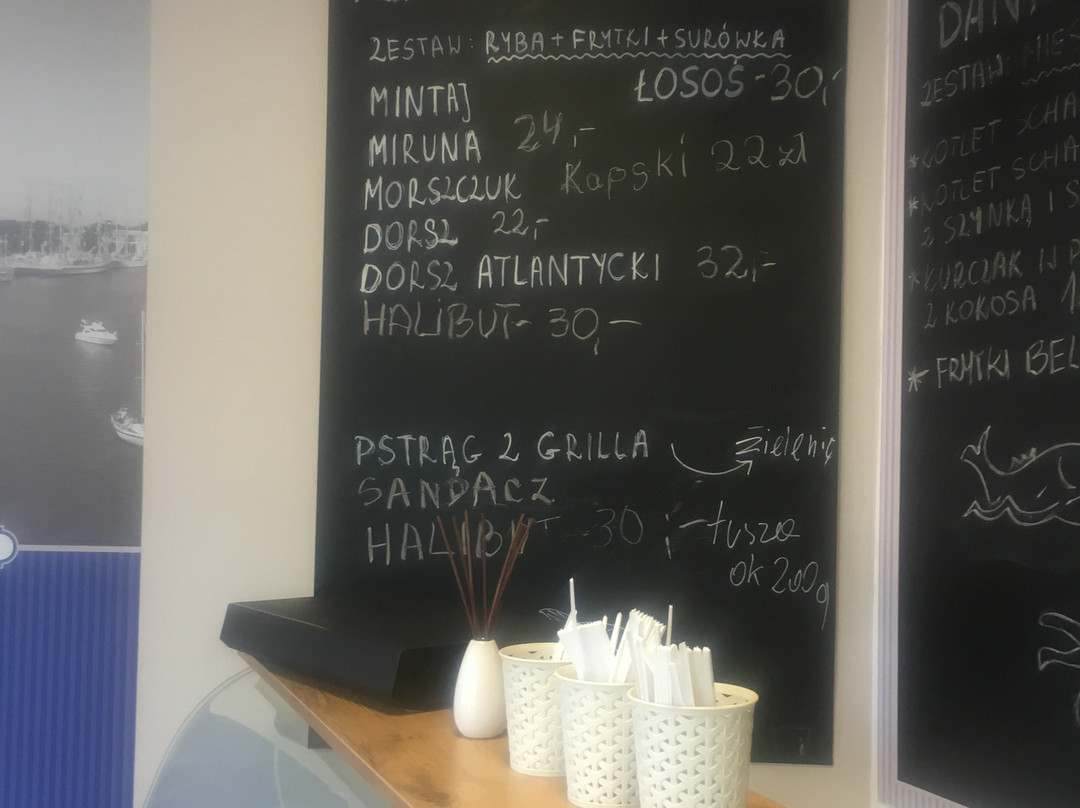 ZESTAW: RYBA + FRYTKI + SURÓWKA
ŁOSOŚ - 30,-
MINTAJ
MIRUNA 24,-
MORSZCZUK Kapski 22 zł
DORSZ 22,-
DORSZ ATLANTYCKI 32,-
HALIBUT - 30,-
PSTRĄG Z GRILLA
SANDACZ
HALIBUT 30,- tusza
ok 200g
ZESTAW: MIĘS
* KOTLET SCHA
* KOTLET SCHA
Z SZYNKĄ I S
* KURCZAK W P
Z KOKOSA 1
* FRYTKI BEL